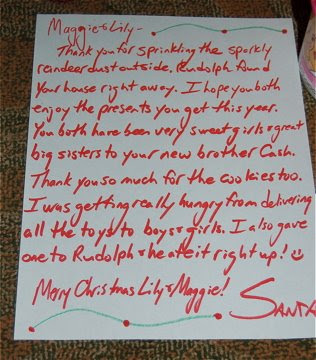 Maggie & Lily -
Thank you for sprinkling the sparkly
reindeer dust outside. Rudolph found
your house right away. I hope you both
enjoy the presents you get this year.
You both have been very sweet girls & great
big sisters to your new brother Cash.
Thank you so much for the cookies too.
I was getting really hungry from delivering
all the toys to boys & girls. I also gave
one to Rudolph & he ate it right up! ☺
Merry Christmas Lily & Maggie!
Santa